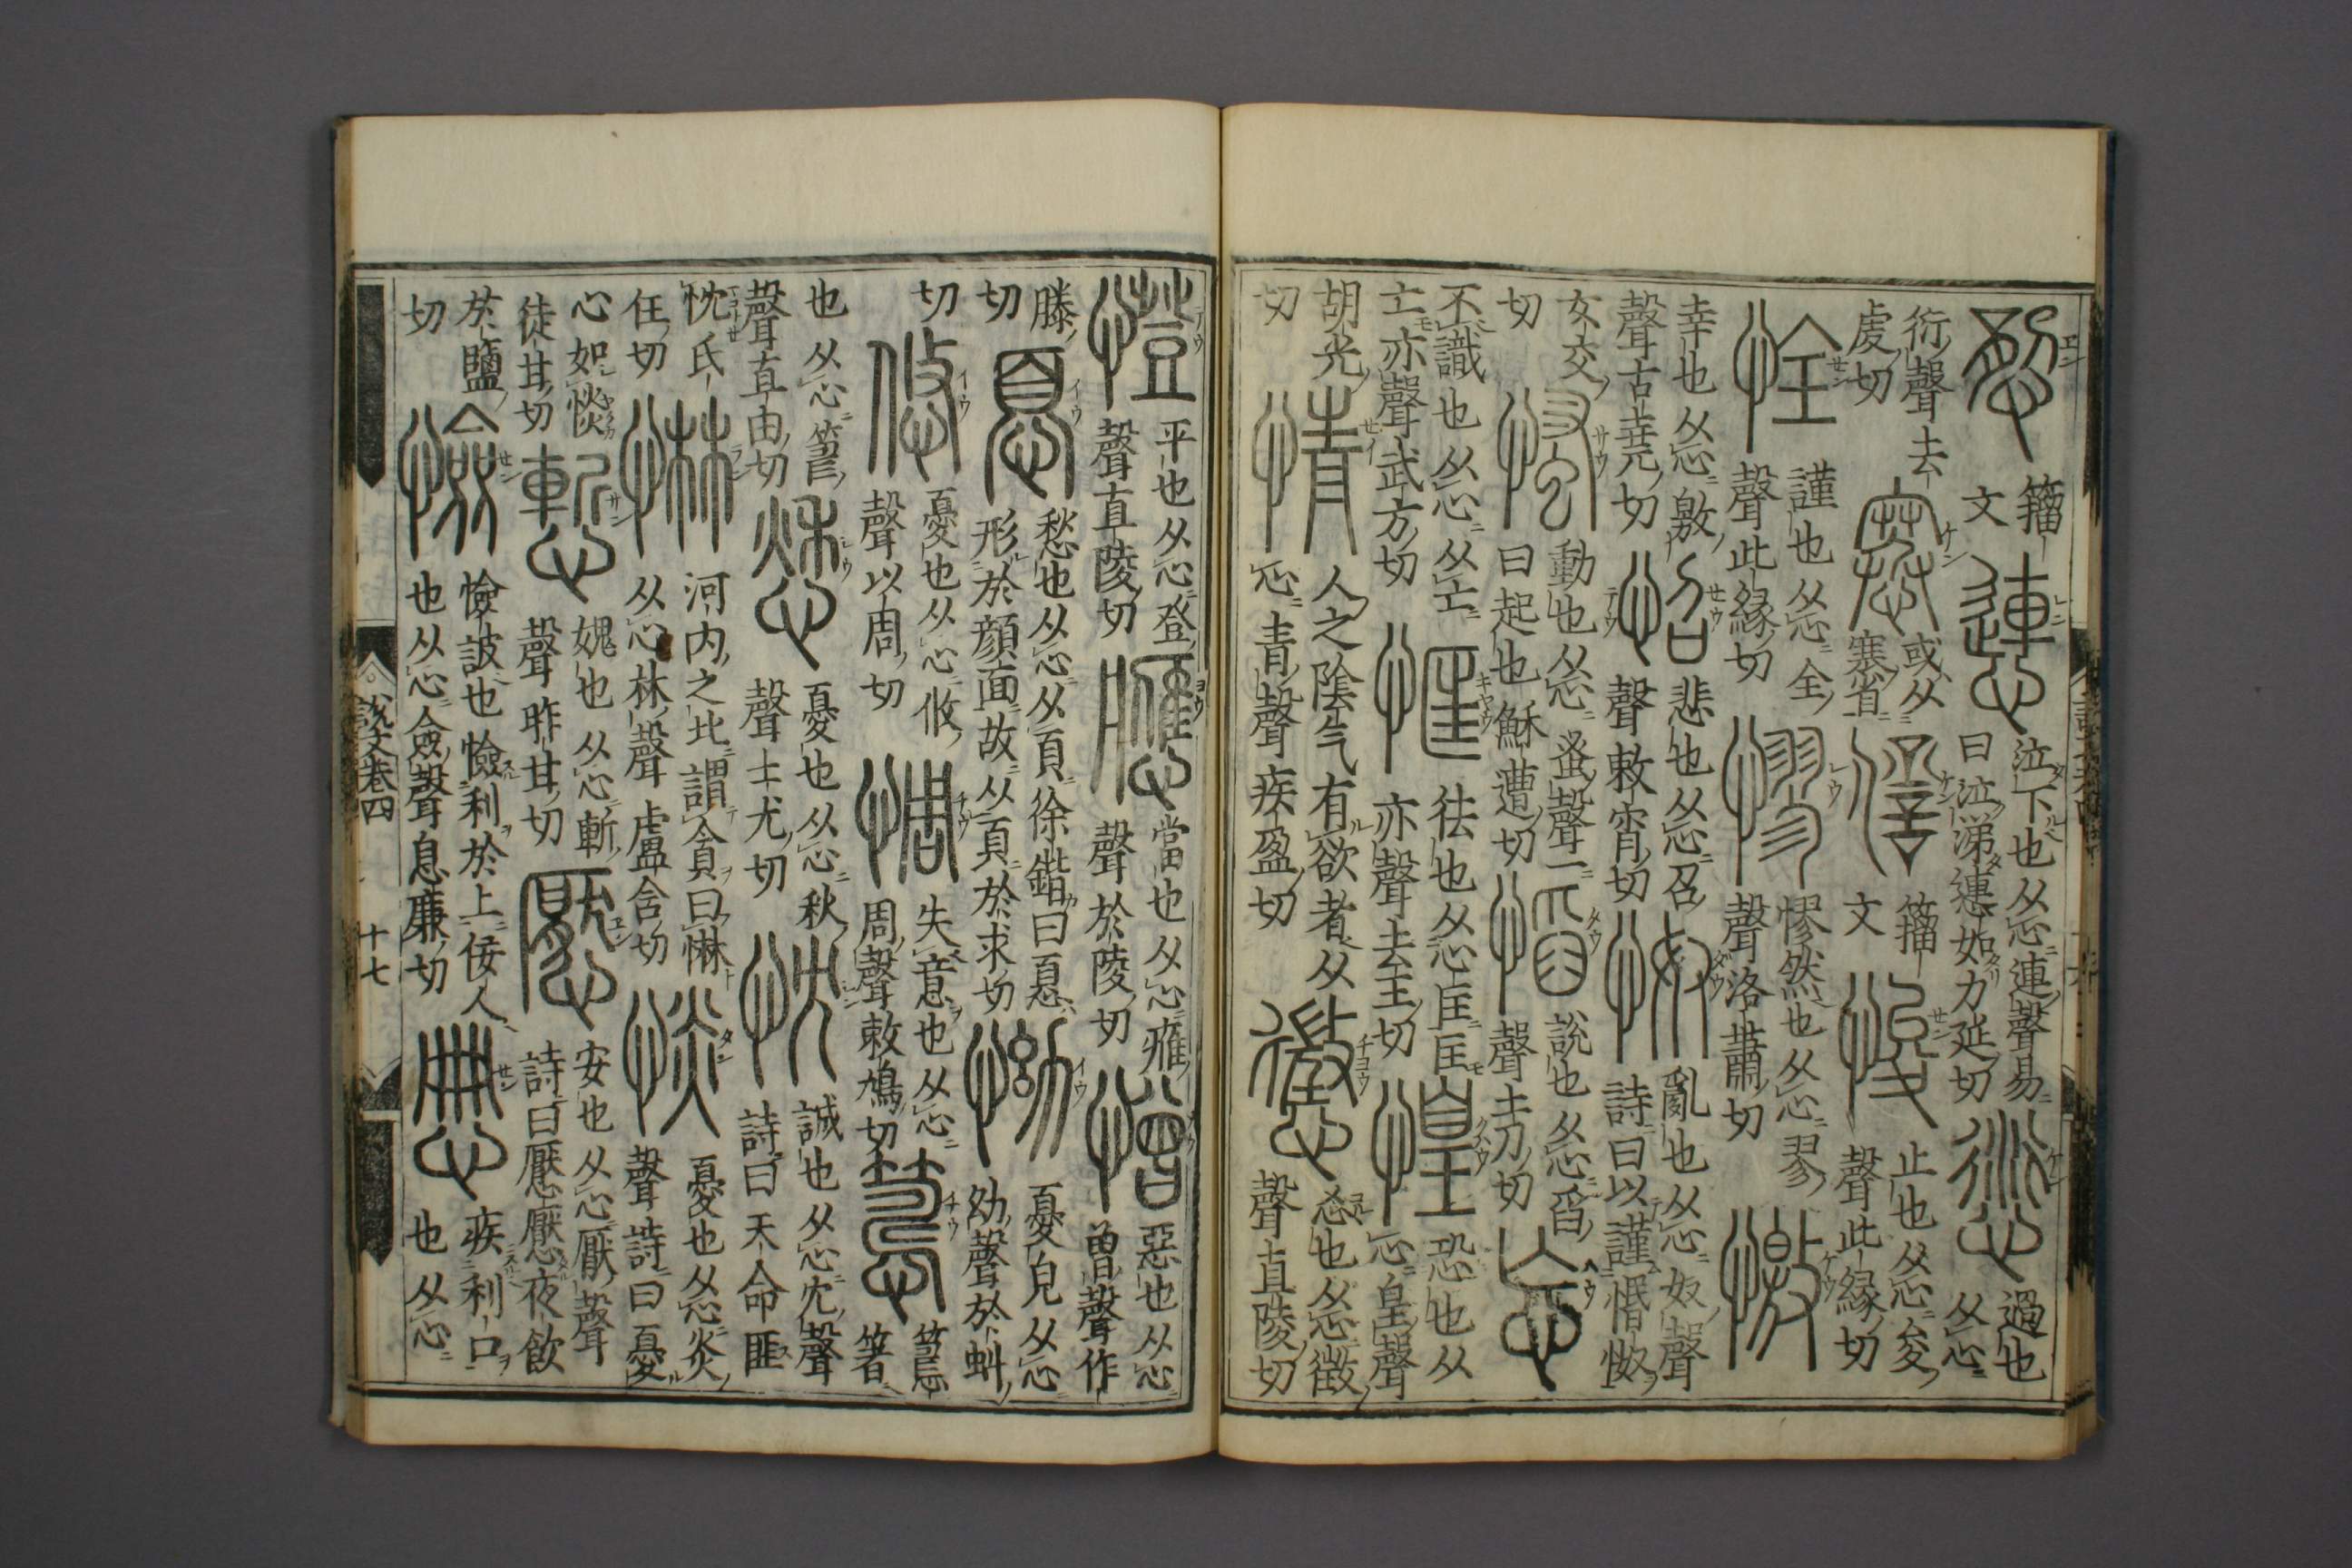 籒文
㦁 泣下也从心連聲易
曰泣涕㦁如力延切
愆 過也
从心
衍聲去
虔切
或从
寒省
籒
文
悛 止也从心夋
聲此緣切
恮 謹也从心全
聲此緣切
憀 憀然也从心翏
聲洛蕭切
憿
幸也从心敫
聲古堯切
怊 悲也从心召
聲敕宵切
怓 亂也从心奴聲
詩曰以謹惽怓
女交
切
慅 動也从心蚤聲一
曰起也穌遭切
慆 說也从心舀
聲土刀切
忘
不識也从心从亡
亡亦聲武方切
恇 怯也从心匡匡
亦聲去王切
惶 恐也从
心皇聲
胡光
切
情 人之陰气有欲者从
心青聲疾盈切
懲 㣻也从心徵
聲直陵切
憕 平也从心登
聲直陵切
應 當也从心䧹
聲於陵切
憎 惡也从心
曾聲作
滕
切
惪 愁也从心从頁徐鍇曰惪
形於顔面故从頁於求切
怮 憂皃从心
幼聲於虯
切
悠 憂也从心攸
聲以周切
惆 失意也从心
周聲敕鳩切
箸
也从心
聲直由切
愁 憂也从心秋
聲士尤切
忱 誠也从心冘聲
詩曰天命匪
忱氏
任切
惏 河内之北謂貪曰惏
从心林聲盧含切
惔 憂也从心炎
聲詩曰憂
心如惔
徒甘切
慙 媿也从心斬
聲昨甘切
懕 安也从心厭聲
詩曰懕懕夜飲
於鹽
切
憸 憸詖也憸利於上佞人
也从心僉聲息廉切
疾利口
也从心
說文卷四
十七